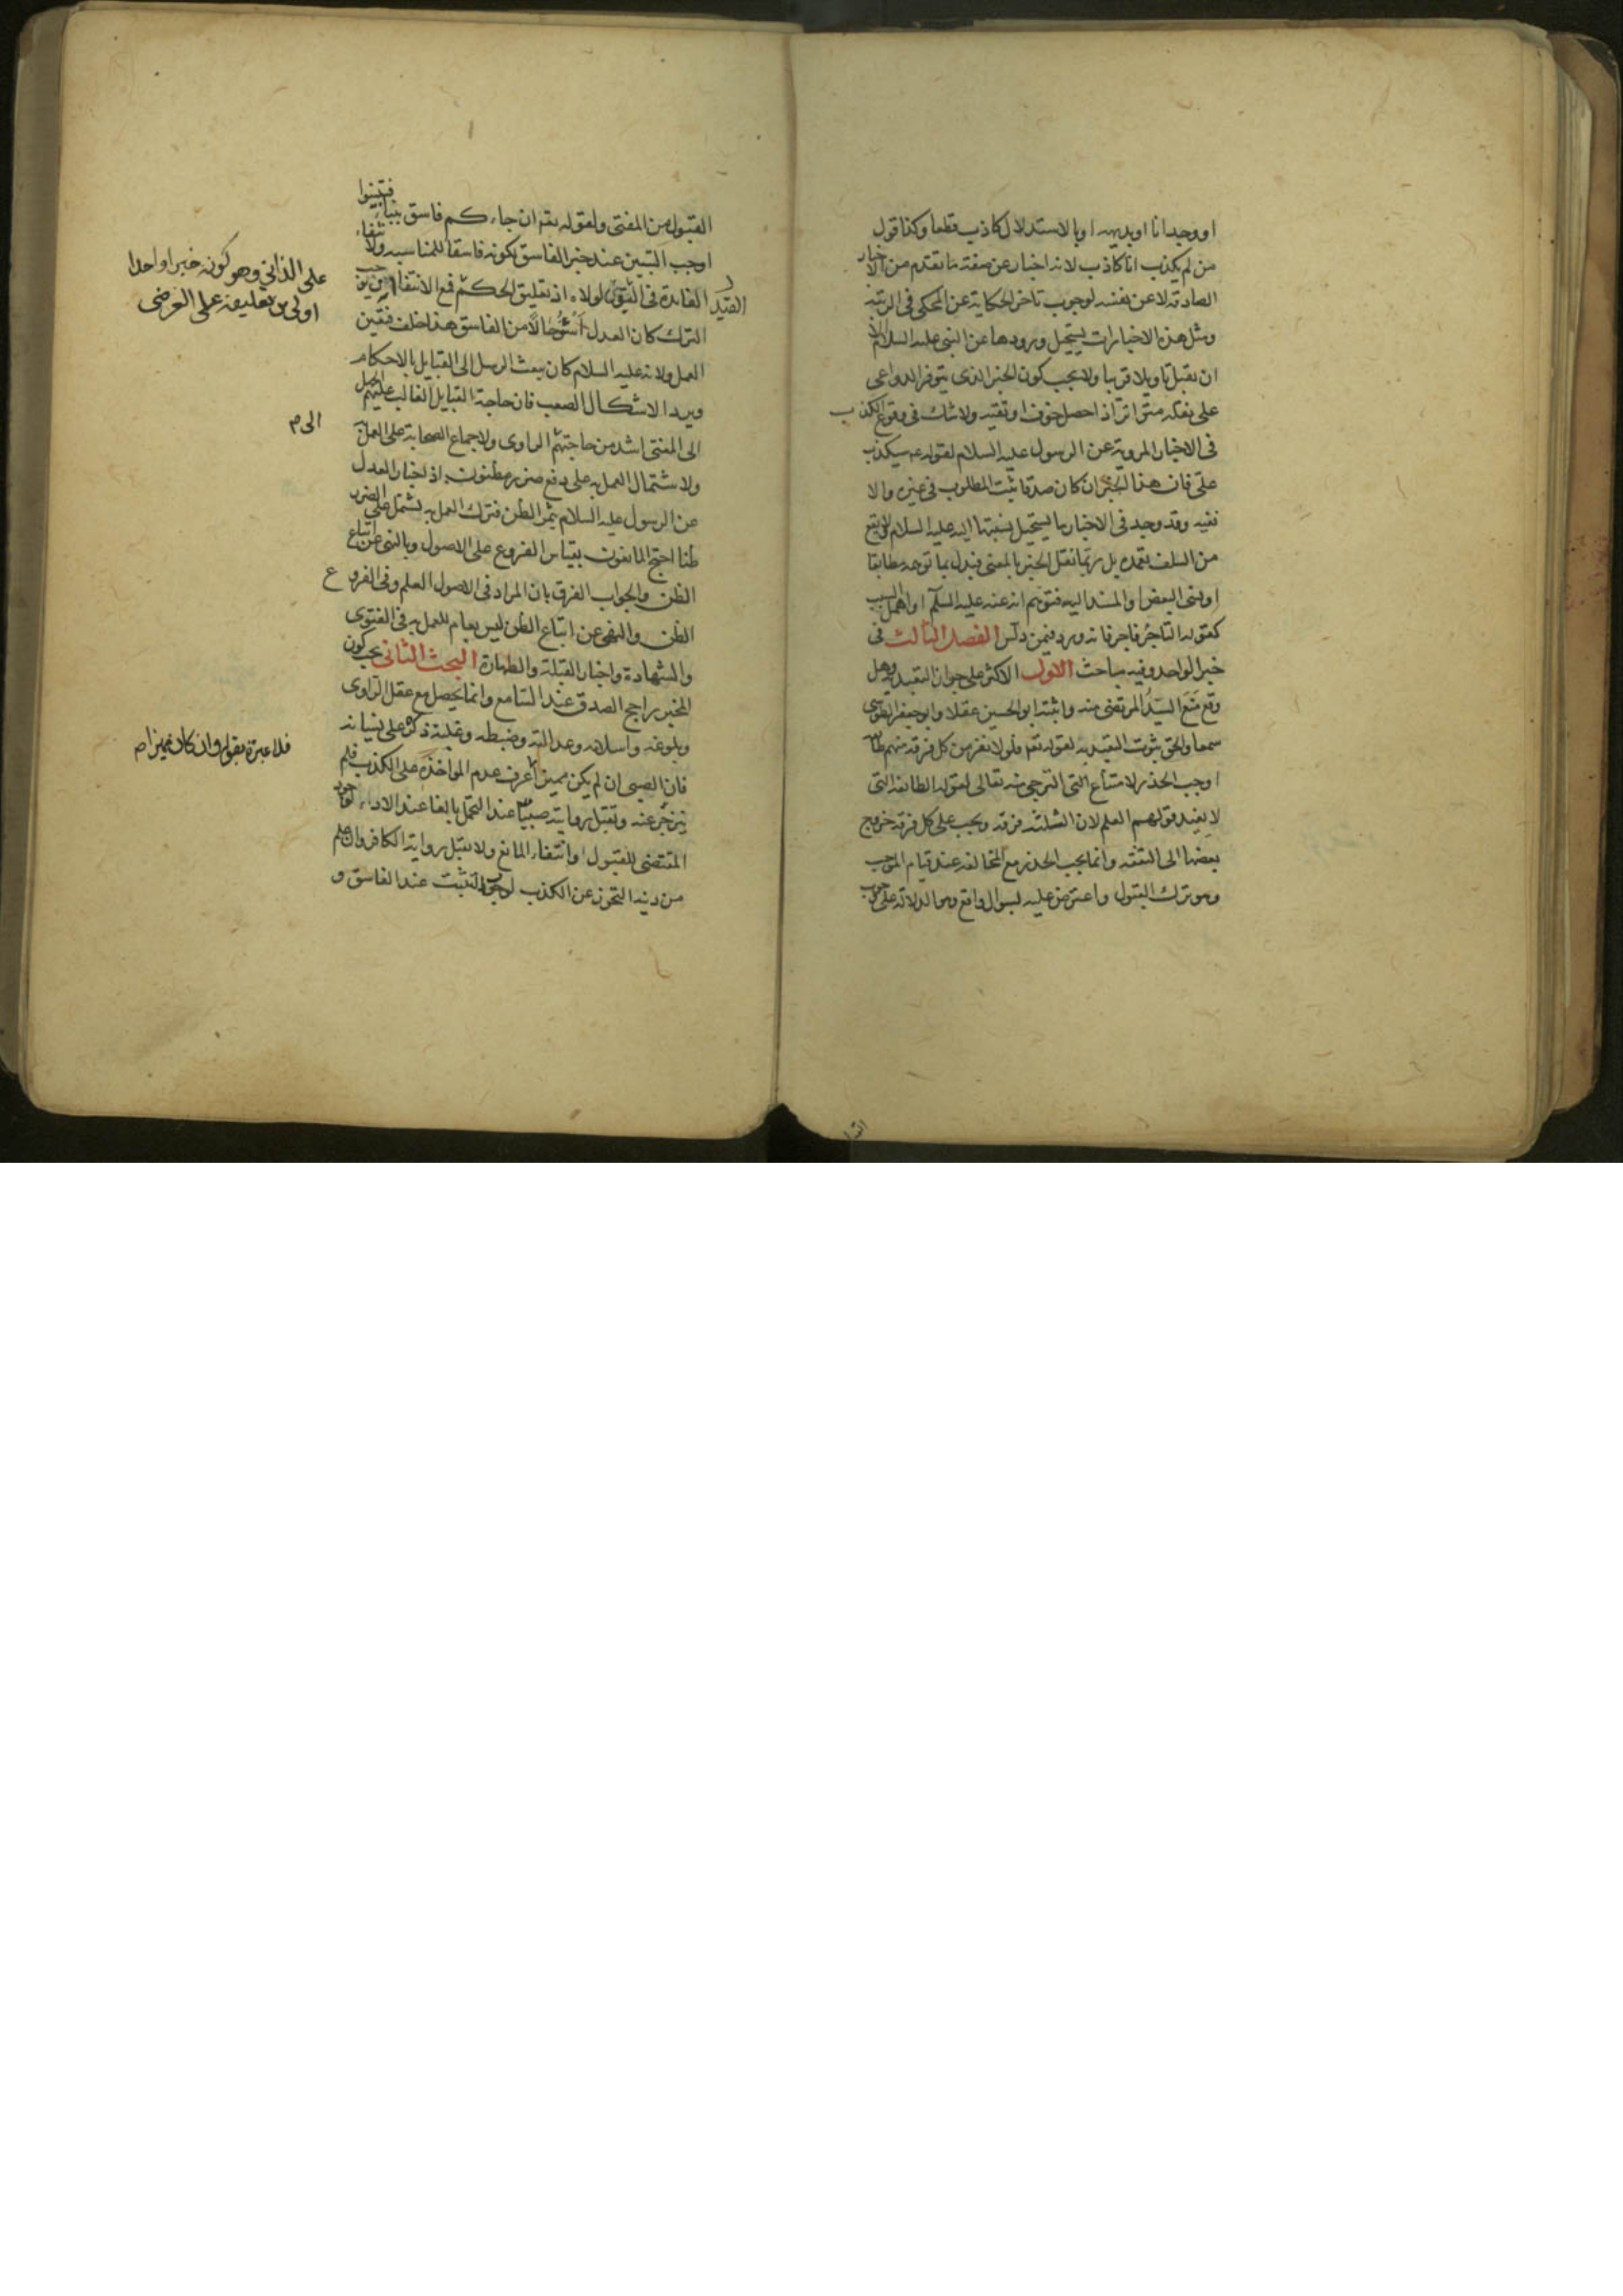 او وجدانا او بديهه او بالاستدلال كاذب قطعا وكذا قول
من لم يكذب انا كاذب لانه اخبار عن صفة ما تقدم من الاخبار
الصادقة لا عن نفسه لوجوب تاخر الحكاية عن المحكى فى الرتبه
ومثل هذه الاخبارات يستحيل ورودها عن النبى عليه السلام الا
ان يقبل تاويلا قريبا ولا يجب كون الخبر الذى يتوفر الدواعى
على نقله متواترا اذا حصل خوف او تقيه ولا شك فى وقوع الكذب
فى الاخبار المروية عن الرسول عليه السلام لقوله عم سيكذب
على فان هذا الخبر ان كان صدقا ثبت المطلوب فى غيره والا
ففيه وقد وجد فى الاخبار ما يستحيل نسبتها اليه عليه السلام ولا يقع
من السلف تعمده بل ربما نقل الخبر بالمعنى فبدل بما توهمه مطابقا
او نسى البعض او المسند اليه فتوهم انه عنه عليه السلم او اهمل السبب
كقوله التاجر فاجر فانه ورد فيمن دلس الفصل الثالث فى
خبر الواحد وفيه مباحث الاول الاكثر على جواز التعبد به وهل
وقع منع السيد المرتضى منه واثبته ابو الحسين عقلا وابو جعفر الطوسى
سمعا والحق ثبوت التعبد به لقوله تعم فلولا نفر من كل فرقة منهم طا
اوجب الحذر لامتناع الترجى منه تعالى لقول الطائفة التى
لا يفيد قولهم العلم لان الثلثه فرقه ويجب على كل فرقة خروج
بعضها الى التفقه وانما يجب الحذر مع المخالفة عند قيام الموجب
وهو ترك القبول واعترض عليه لسوال واقع وهو الدلالة على وجوب
القبول من المفتى ولقوله تعم ان جاءكم فاسق بنباء فتبينوا
اوجب التبين عند خبر الفاسق لكونه فاسقا للمناسبه ولانتفاء
الفايدة فى القيد لولاه اذ تعليق الحكم
على الذاتى وهو كونه خبرا واحدا
اولى من تعليقه على العرضى
فمع الانتفاء ان وجب
الترك كان العدل اسوء حالا من الفاسق هذا خلف فتعين
العمل ولانه عليه السلام كان يبعث الرسل الى القبايل بالاحكام
ويرد الاشكال الصعب فان حاجة القبايل الغالب عليهم الجهل
الى المفتى اشد من حاجتهم الى الراوى ولاجماع الصحابة على العمل به
ولاشتمال العمل به على دفع ضرر مظنون اذ اخبار العدل
عن الرسول عليه السلام يثمر الظن فترك العمل به يشتمل على الضرر
ظنا احتج المانعون بقياس الفروع على الاصول وبالنهى عن اتباع
الظن والجواب الفرق بان المراد فى الاصول العلم وفى الفروع
الظن والنهى عن اتباع الظن ليس بعام للعمل به فى الفتوى
والشهادة واخبار القبلة والطهارة البحث الثانى يجب كون
المخبر راجح الصدق عند السامع وانما يحصل مع عقل الراوى
وبلوغه واسلامه وعدالته وضبطه وغلبة ذكره على نسيانه
فان الصبى ان لم يكن مميزا
فلا عبرة بقوله وان كان مميزا صح
عرف عدم المواخذة على الكذب فلم
ينزجر عنه وتقبل روايته صبيا عند التحمل بالغا عند الاداء لوجود
المقتضى للقبول وانتفاء المانع ولا تقبل رواية الكافر وان علم
من دينه التحرز عن الكذب لوجوب التثبت عند الفاسق و